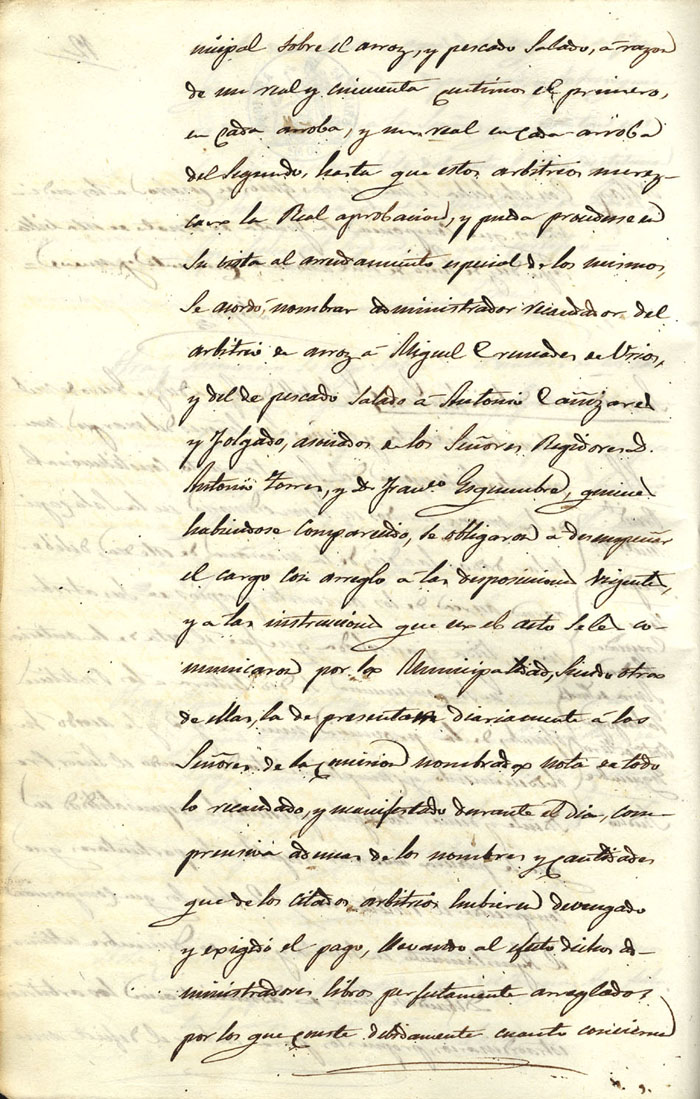 nicipal sobre el arroz, y pescado salado, a razon
de un real y cincuenta centimos el primero,
en cada arroba, y un real en cada arroba
del segundo, hasta que estos arbitrios merez-
can la Real aprobacion, y pueda procederse en
su vista al arrendamiento especial de los mismos,
se acordó, nombrar administrador recaudador del
arbitrio de arroz á Miguel de Urios,
y del de pescado salado á Antonio Cañizares
y Folgado, asociados de los Señores Regidores D.
Antonio Torres, y Dn Franco Esquembre, quienes
habiendose comparecido, se obligaron a desempeñar
el cargo con arreglo a las disposiciones vigentes,
y a las instrucciones que en el acto se les co-
municaron por la Municipalidad, siendo otra
de ellas, la de presentar diariamente á los
Señores de la Comision nombrada nota de todo
lo recaudado, y manifestado durante el dia, com-
prensiva ademas de los nombres y cantidades
que de los citados arbitrios hubieren devengado
y exigido el pago, llevando al efecto dichos ad-
ministradores libros perfectamente arreglados
por los que conste debidamente cuanto concierne